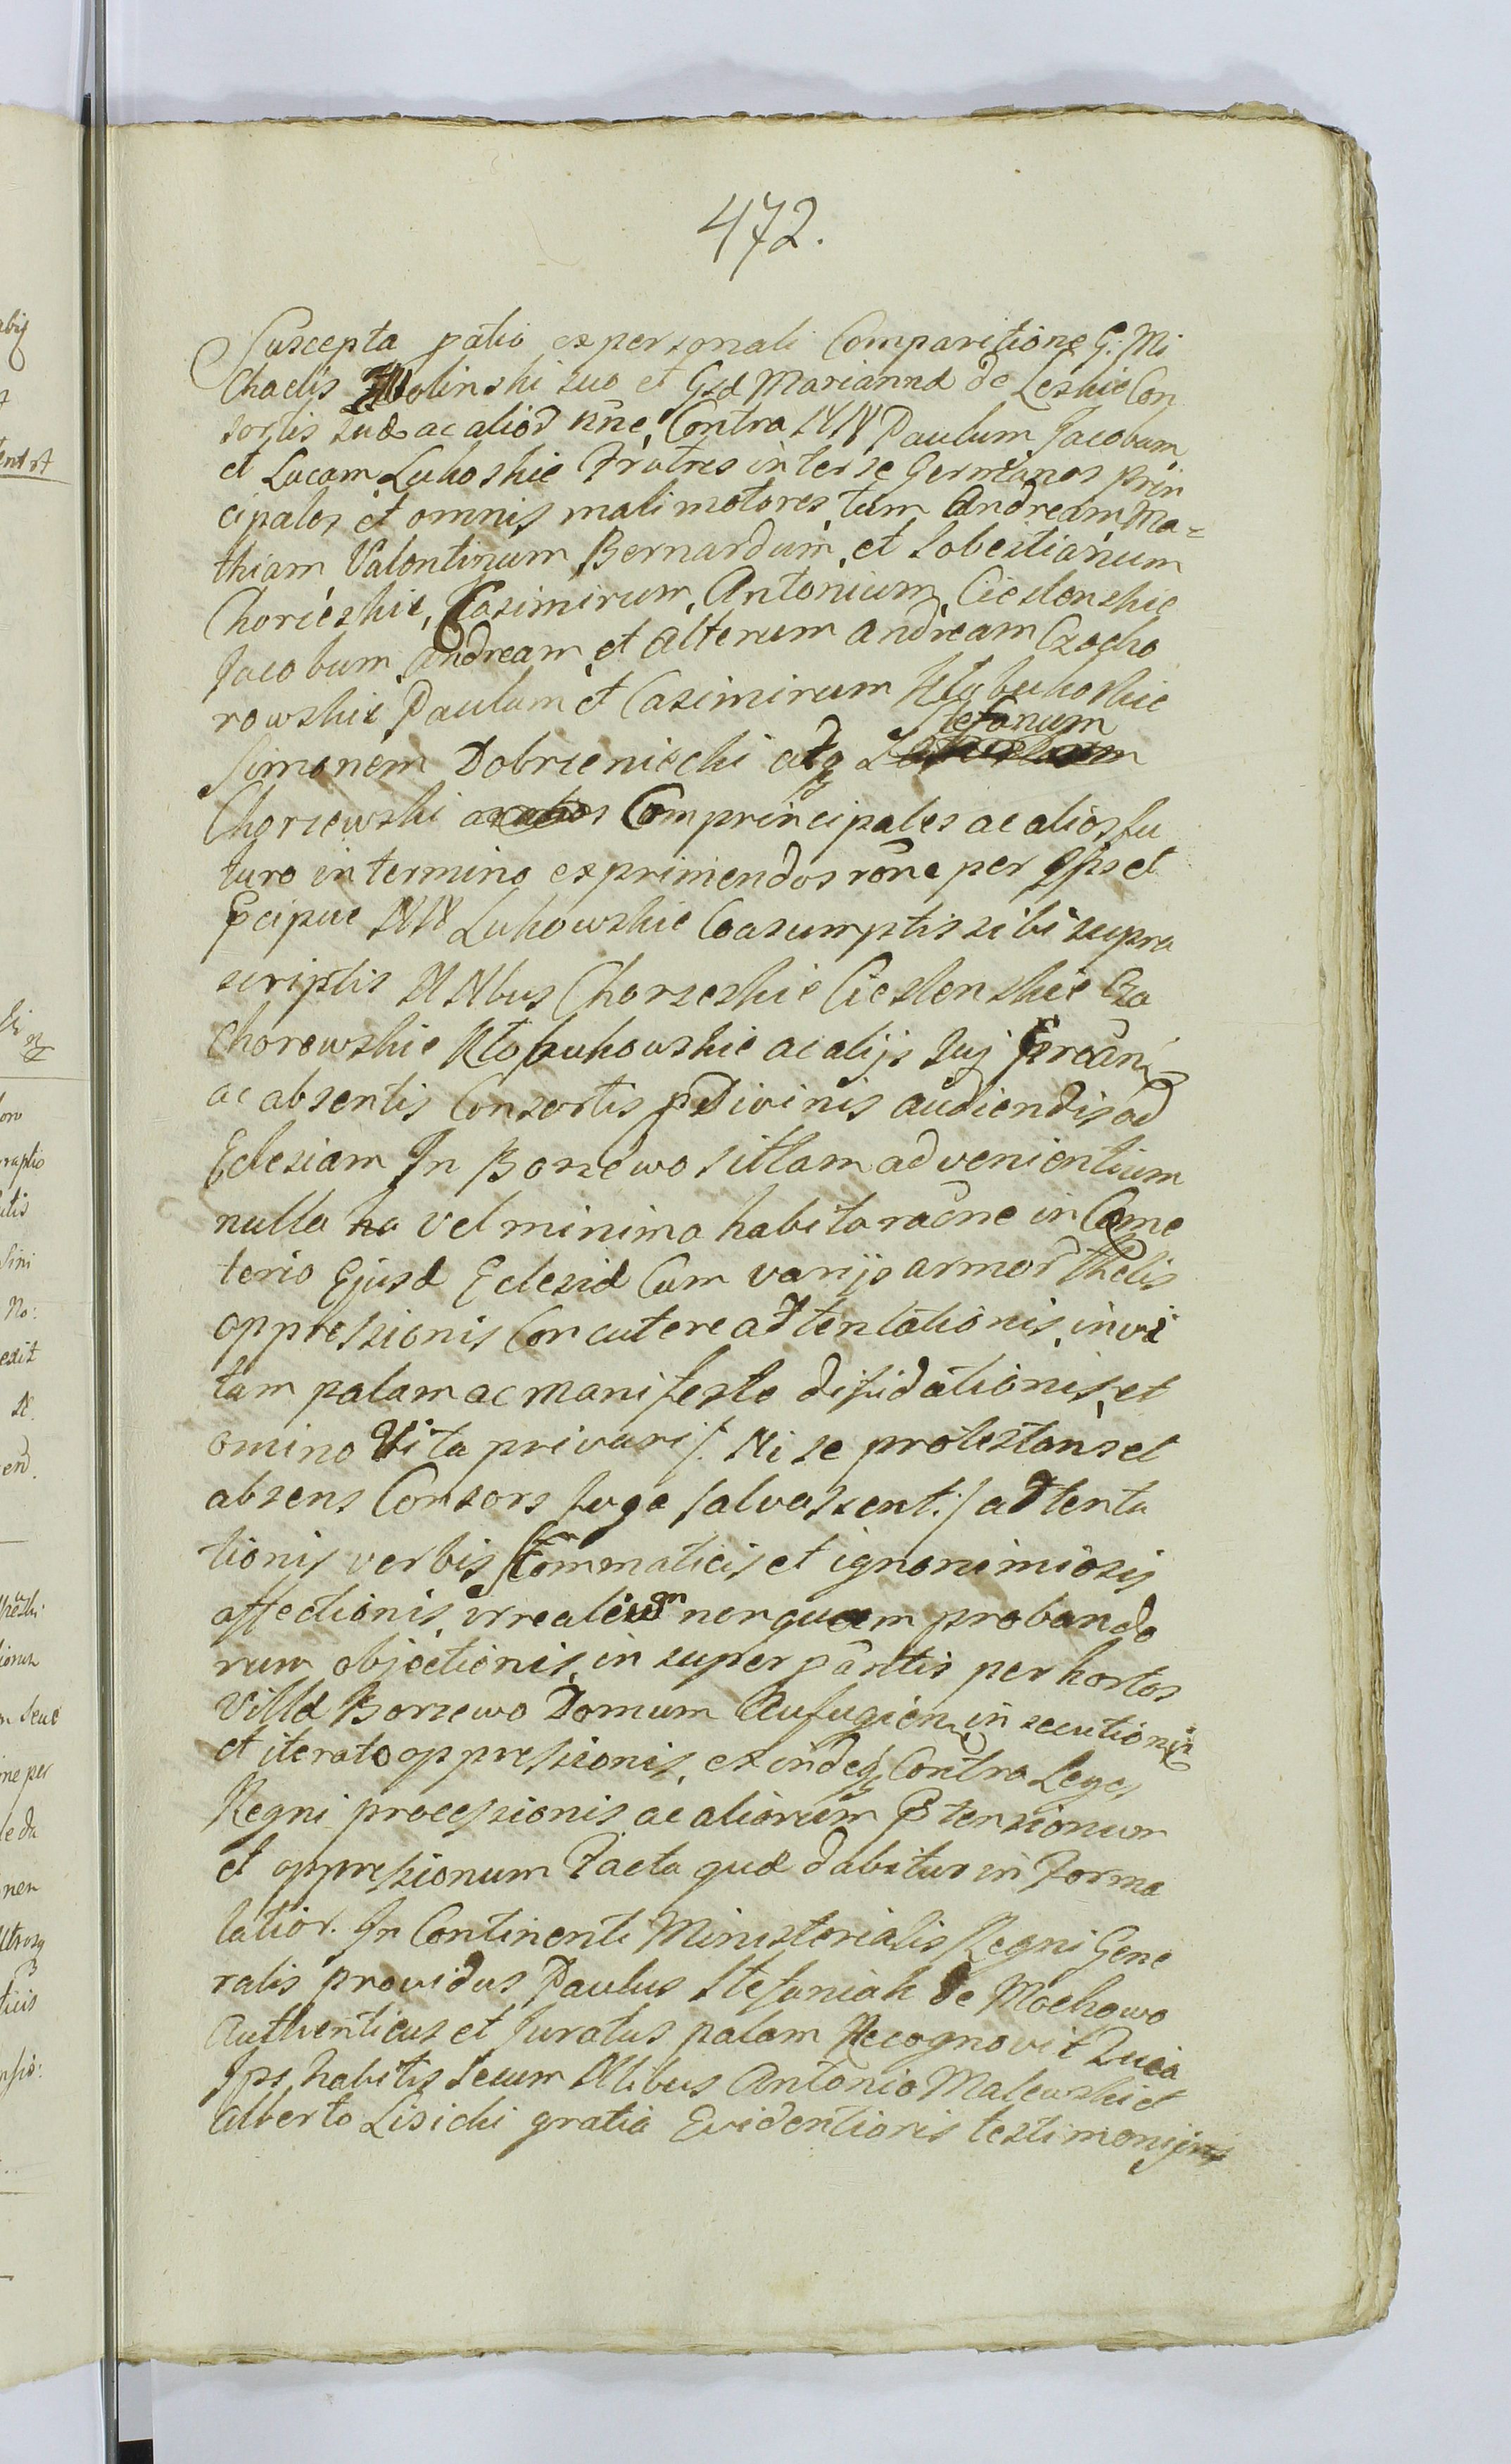 472.
Suscepta patio ex personali Comparitione G. Mi
chaelis Wolinski suo et Gsæ Mariannæ de Leskie Con
sortis suæ ac alioꝝ nne, Contra NN Paulum Jacobum
et Lucam Lukoskie Fratres inter se Germanos prin
cipales et omnis mali motores, tum Andream, Ma=
thiam Valentinum Bernardum, et Sobestianum
Chorzeskie, Casimirum, Antonium, Cieslenskie
Jacobum Andream, et Alterum Andream Czocho
rowskie Paulum et Casimirum Kłobukoskie
Stefanum
Simonem Dobrzeniecki atq
Chorzewski ac alios Comprincipales ac alios fu
turo in termino exprimendos rône per Ips et
Pcipue NN Lukowskie Coasumptis sibi supra
scriptis NNbus Chorzeskie Cieslenskie Czo
chorowskie Kłobukowskie ac alijs Suj
ac absentis Consortis p Divinis audiendis ad
Eclesiam In Borzewo sittam advenientium
nulla ha vel minima habita racône in Came
terio Ejusd Eclesiæ Cum varijs armoꝝ thelis
oppressionis Concutere adtentationis, invi
tam palam ac manifesto difidationis, et
omino Vita privari /. Ni se protestans et
absens Consors fuga salvassent: / adtenta
tionis verbis Stommaticis et ignonimiosis
affectionis, irrealium nerquam probando
rum objectionis, in super pântis per hortos
Villæ Borzewo Domum Aufugien insecutionis
et iterato oppressionis, exindeq Contra Leges
Regni processionis ac aliorum Ptensionum
et oppressionum Facta quæ dabitur in Forma
latior. In Continenti Ministerialis Regni Gene
ralis providus Paulus Stefaniak de Mochowo
Authenticus et Juratus palam Recognovit Quia
Ips habitis secum Nlibus Antonio Malewski et
Alberto Lisicki gratia Evidentioris testimonij